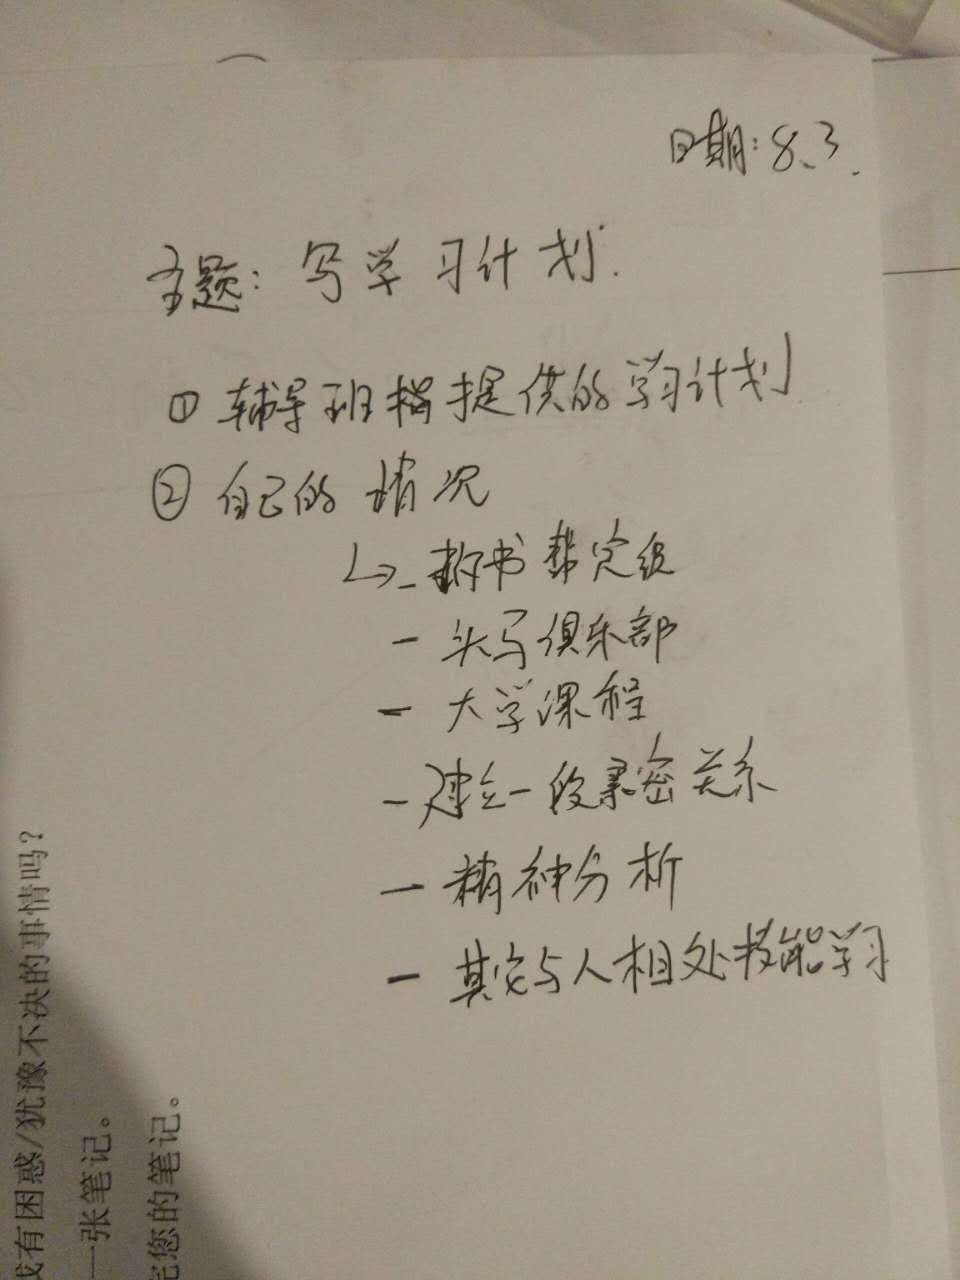 日期: 8.3.
主题: 写学习计划.
① 辅导班 提供的学习计划
② 自己的情况
↳ - 拆书帮定级
- 头马俱乐部
- 大学课程
- 建立一段亲密关系
- 精神分析
- 其它与人相处技能学习
我有困惑/犹豫不决的事情吗?
一张笔记。
完您的笔记。